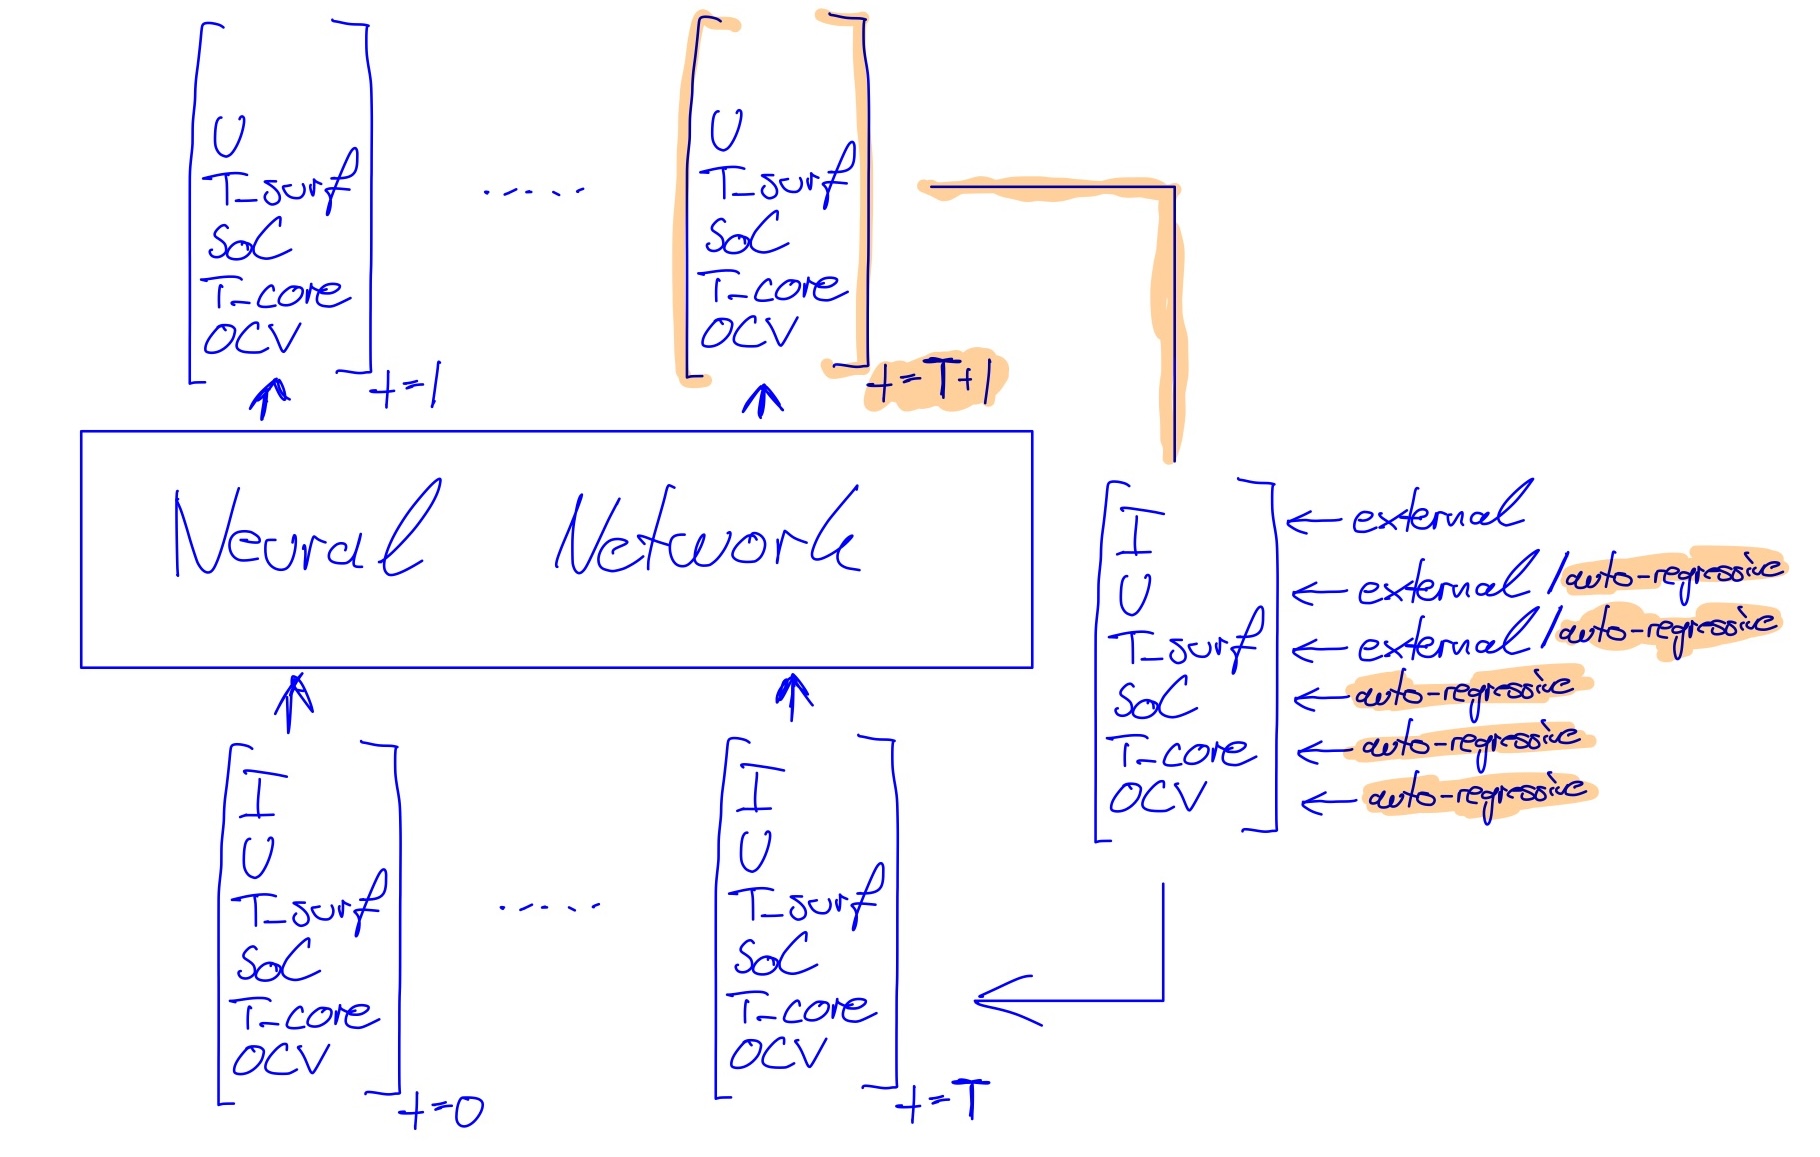 U
T_surf
SoC
T_core
OCV
t=1
.....
U
T_surf
SoC
T_core
OCV
t=T+1
Neural Network
I
U
T_surf
SoC
T_core
OCV
← external
← external / auto-regressive
← external / auto-regressive
← auto-regressive
← auto-regressive
← auto-regressive
I
U
T_surf
SoC
T_core
OCV
t=0
.....
I
U
T_surf
SoC
T_core
OCV
t=T